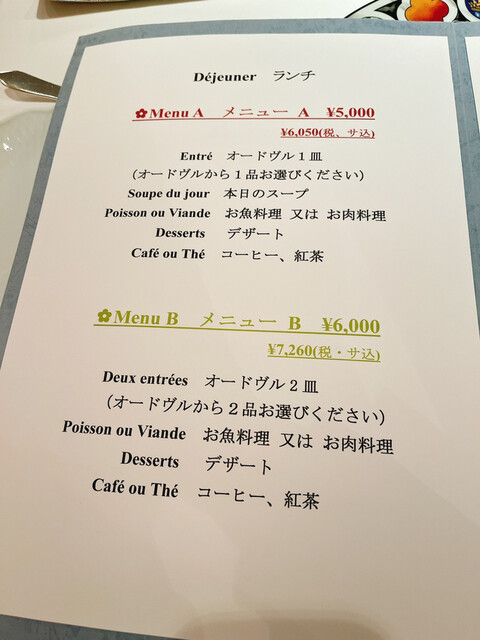 Déjeuner ランチ
✿Menu A メニュー A ¥5,000
¥6,050(税、サ込)
Entré オードヴル1皿
(オードヴルから1品お選びください)
Soupe du jour 本日のスープ
Poisson ou Viande お魚料理 又は お肉料理
Desserts デザート
Café ou Thé コーヒー、紅茶
✿Menu B メニュー B ¥6,000
¥7,260(税・サ込)
Deux entrées オードヴル2皿
(オードヴルから2品お選びください)
Poisson ou Viande お魚料理 又は お肉料理
Desserts デザート
Café ou Thé コーヒー、紅茶